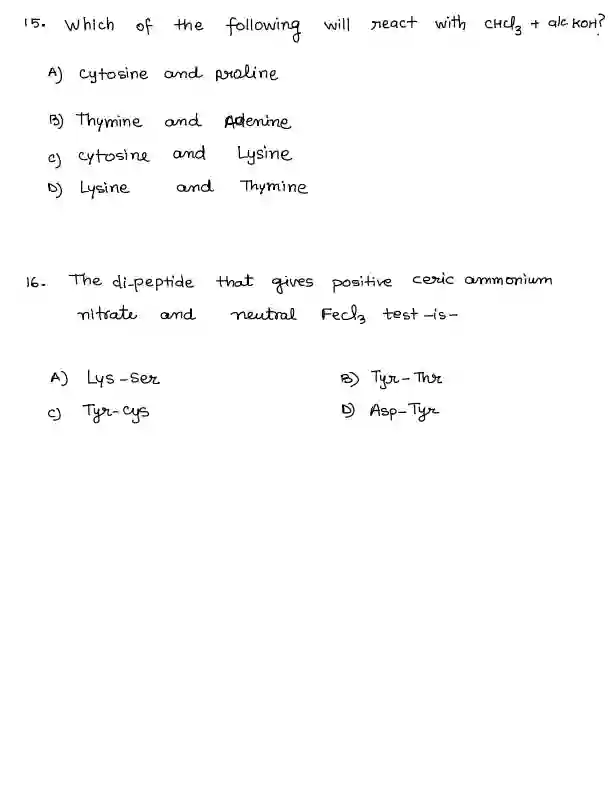 15. Which of the following will react with CHCl3 + alc. KOH?
A) Cytosine and proline
B) Thymine and Adenine
C) cytosine and Lysine
D) Lysine and Thymine
16. The di-peptide that gives positive ceric ammonium
nitrate and neutral FeCl3 test -is-
A) Lys - Ser
B) Tyr - Thr
C) Tyr - Cys
D) Asp - Tyr